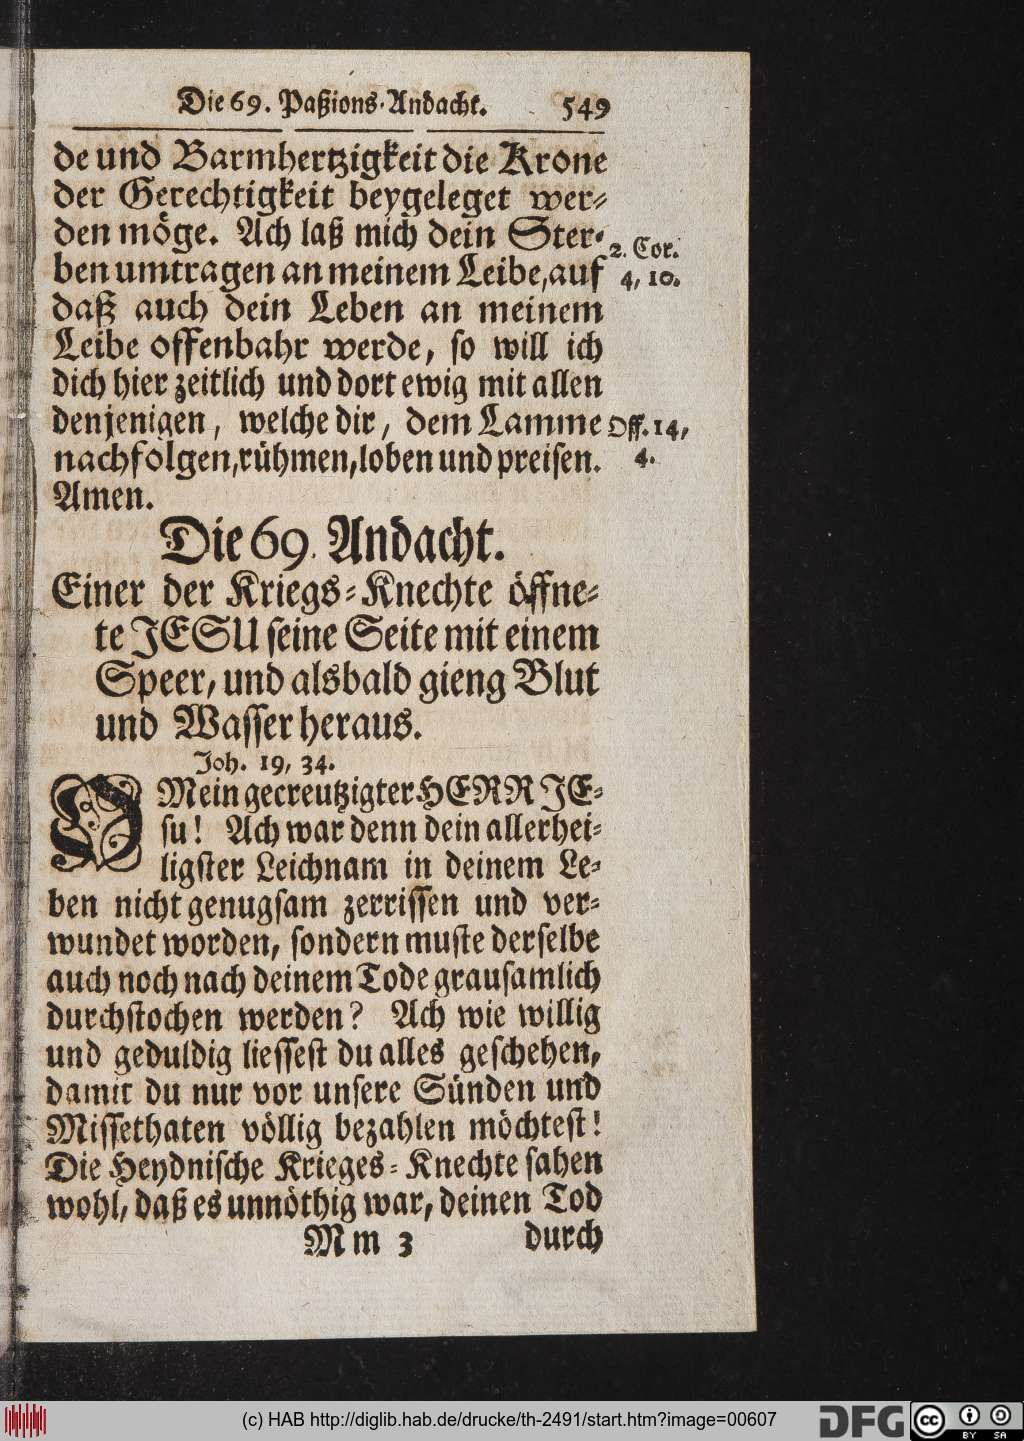 Die 69. Paßions-Andacht. 549
de und Barmhertzigkeit die Krone
der Gerechtigkeit beygeleget wer-
den möge. Ach laß mich dein Ster-
2. Cor.
ben umtragen an meinem Leibe, auf
4, 10.
daß auch dein Leben an meinem
Leibe offenbahr werde, so will ich
dich hier zeitlich und dort ewig mit allen
denjenigen, welche dir, dem Lamme
Off. 14,
nachfolgen, rühmen, loben und preisen.
4.
Amen.
Die 69. Andacht.
Einer der Kriegs-Knechte öffne-
te JESU seine Seite mit einem
Speer, und alsbald gieng Blut
und Wasser heraus.
Joh. 19, 34.
O Mein gecreutzigter HERR JE-
su! Ach war denn dein allerhei-
ligster Leichnam in deinem Le-
ben nicht genugsam zerrissen und ver-
wundet worden, sondern muste derselbe
auch noch nach deinem Tode grausamlich
durchstochen werden? Ach wie willig
und geduldig liessest du alles geschehen,
damit du nur vor unsere Sünden und
Missethaten völlig bezahlen möchtest!
Die Heydnische Krieges-Knechte sahen
wohl, daß es unnöthig war, deinen Tod
M m 3 durch
(c) HAB http://diglib.hab.de/drucke/th-2491/start.htm?image=00607
DFG
cc BY SA